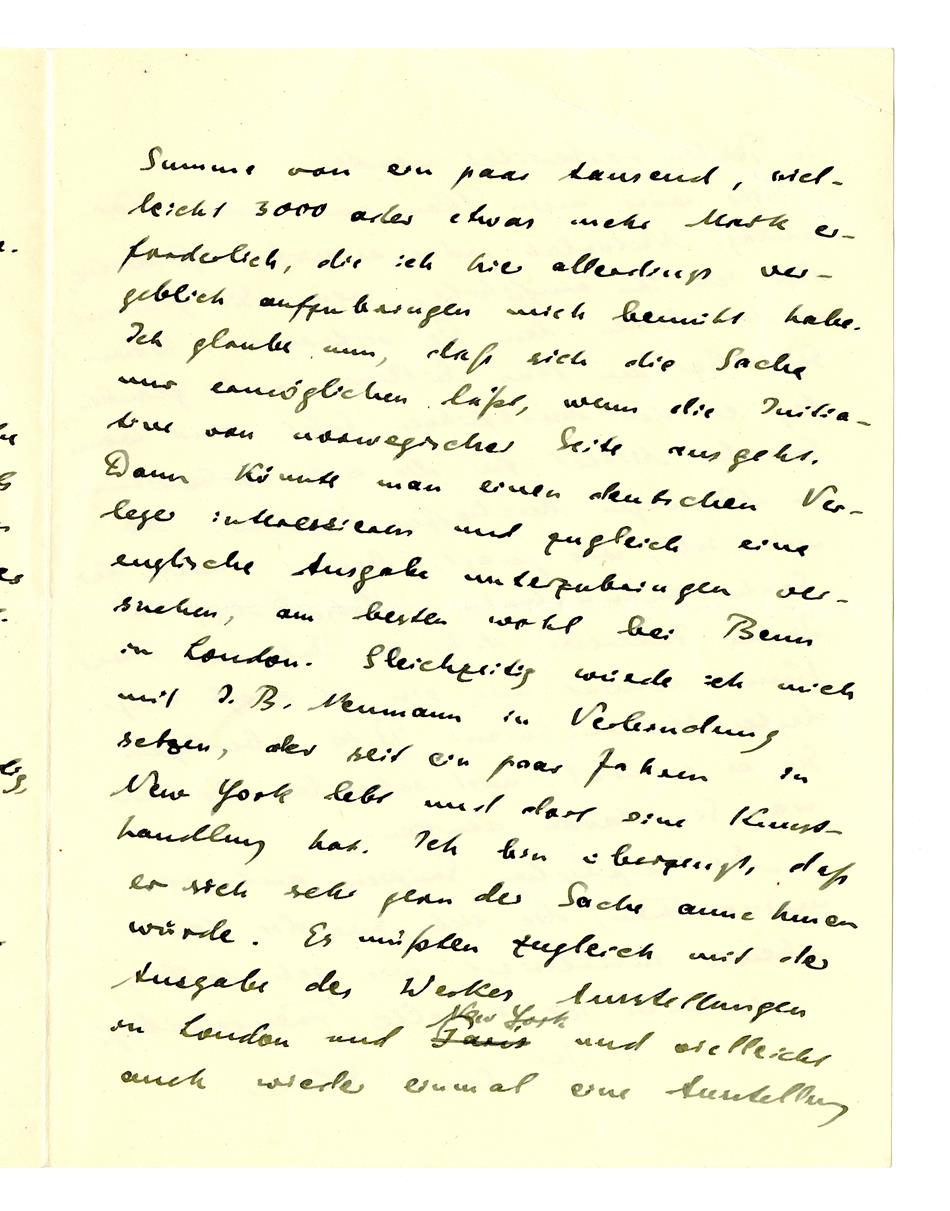 Summe von ein paar tausend, viel-
leicht 3000 oder etwas mehr Mark er-
forderlich, die ich hier allerdings ver-
geblich aufzubringen mich bemüht habe.
Ich glaube nun, daß sich die Sache
nur ermöglichen läßt, wenn die Initia-
tive von norwegischer Seite ausgeht.
Dann könnte man einen deutschen Ver-
leger interessieren und zugleich eine
englische Ausgabe unterzubringen ver-
suchen, am besten wohl bei Benn
in London. Gleichzeitig würde ich mich
mit J. B. Neumann in Verbindung
setzen, der seit ein paar Jahren in
New York lebt und dort eine Kunst-
handlung hat. Ich bin überzeugt, daß
er sich sehr gern der Sache annehmen
würde. Es müßten zugleich mit der
Ausgabe des Werkes Ausstellungen
New York
in London und Paris und vielleicht
auch wieder einmal eine Ausstellung